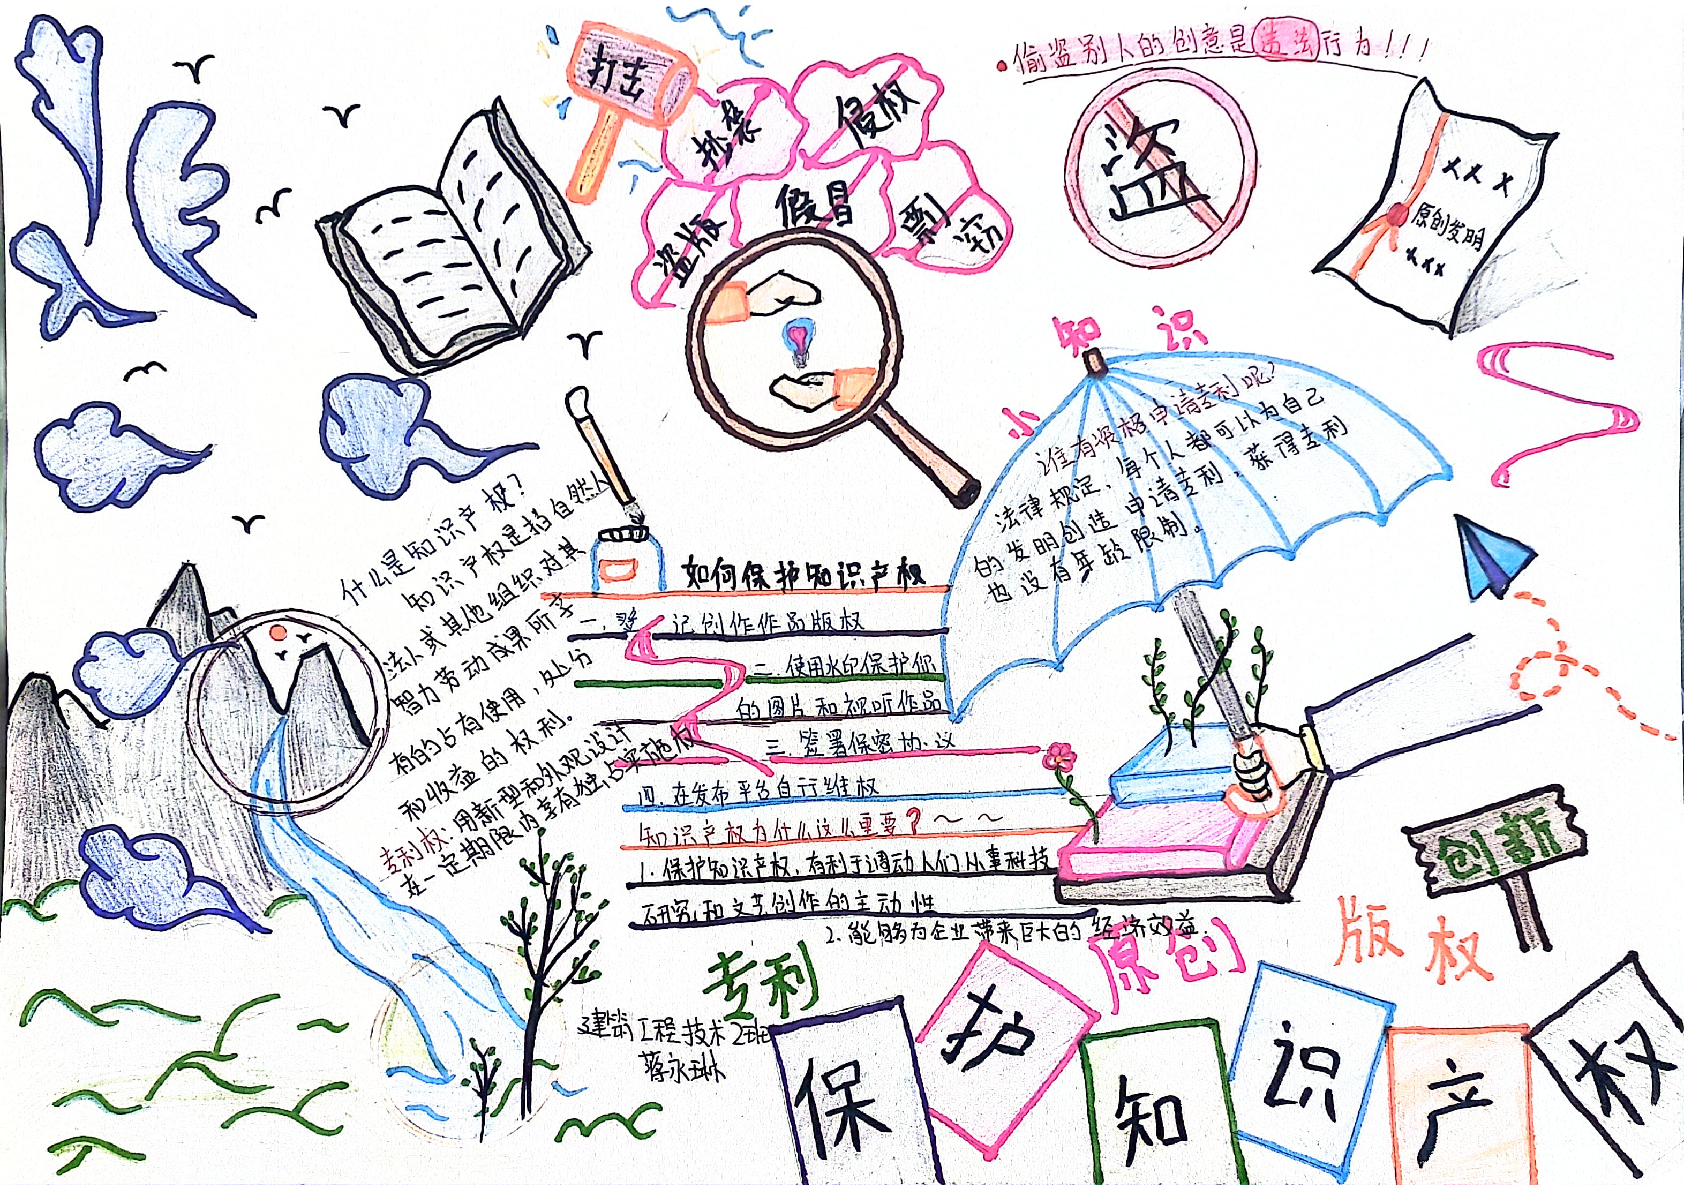 打击
抄袭
侵权
盗版
假冒
剽窃
•偷盗别人的创意是违法行为!!!
盗
XX X
原创发明
XXX
小知识
谁有资格申请专利呢?
法律规定,每个人都可以为自己
的发明创造申请专利,获得专利
也没有年龄限制。
什么是知识产权?
知识产权是指自然人
法人或其他组织对其
智力劳动成果所享
有的占有使用,处分
和收益的权利。
专利权:用新型和外观设计
在一定期限内享有独占实施权
如何保护知识产权
一.登记创作作品版权
二.使用水印保护你
的图片和视听作品
三.签署保密协议
四.在发布平台自行维权
知识产权为什么这么重要?~~
1.保护知识产权,有利于调动人们从事科技
研究和文艺创作的主动性
2.能够为企业带来巨大的经济效益.
创新
版权
原创
专利
建筑工程技术2班
蒋永琳
保护知识产权